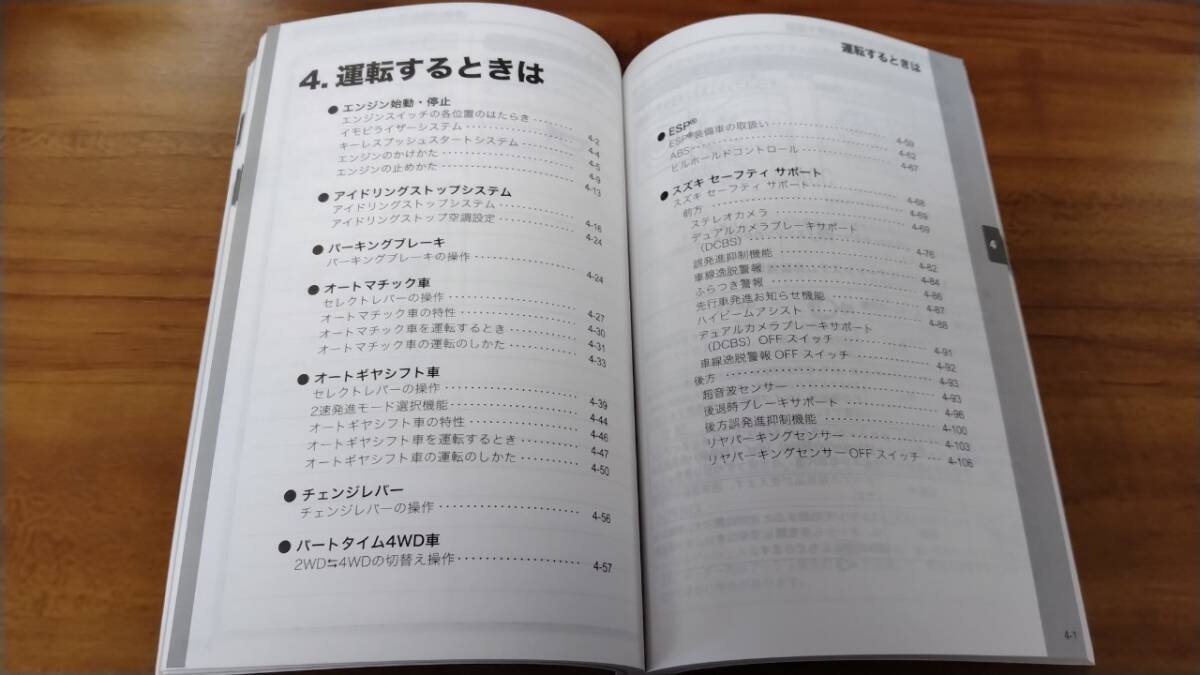 4. 運転するときは
● エンジン始動・停止
エンジンスイッチの各位置のはたらき ········· 4-2
イモビライザーシステム ········· 4-4
キーレスプッシュスタートシステム ········· 4-5
エンジンのかけかた ········· 4-9
エンジンの止めかた ········· 4-13
● アイドリングストップシステム
アイドリングストップシステム ········· 4-16
アイドリングストップ空調設定 ········· 4-24
● パーキングブレーキ
パーキングブレーキの操作 ········· 4-24
● オートマチック車
セレクトレバーの操作 ········· 4-27
オートマチック車の特性 ········· 4-30
オートマチック車を運転するとき ········· 4-31
オートマチック車の運転のしかた ········· 4-33
● オートギヤシフト車
セレクトレバーの操作 ········· 4-39
2速発進モード選択機能 ········· 4-44
オートギヤシフト車の特性 ········· 4-46
オートギヤシフト車を運転するとき ········· 4-47
オートギヤシフト車の運転のしかた ········· 4-50
● チェンジレバー
チェンジレバーの操作 ········· 4-56
● パートタイム4WD車
2WD⇆4WDの切替え操作 ········· 4-57
運転するときは
● ESP®
ESP®装備車の取扱い ········· 4-59
ABS ········· 4-62
ヒルホールドコントロール ········· 4-67
● スズキ セーフティ サポート
スズキ セーフティ サポート ········· 4-68
前方 ········· 4-69
ステレオカメラ ········· 4-69
デュアルカメラブレーキサポート
（DCBS） ········· 4-76
誤発進抑制機能 ········· 4-82
車線逸脱警報 ········· 4-84
ふらつき警報 ········· 4-86
先行車発進お知らせ機能 ········· 4-87
ハイビームアシスト ········· 4-88
デュアルカメラブレーキサポート
（DCBS）OFFスイッチ ········· 4-91
車線逸脱警報OFFスイッチ ········· 4-92
後方 ········· 4-93
超音波センサー ········· 4-93
後退時ブレーキサポート ········· 4-96
後方誤発進抑制機能 ········· 4-100
リヤパーキングセンサー ········· 4-103
リヤパーキングセンサーOFFスイッチ ··· 4-106
4
4-1